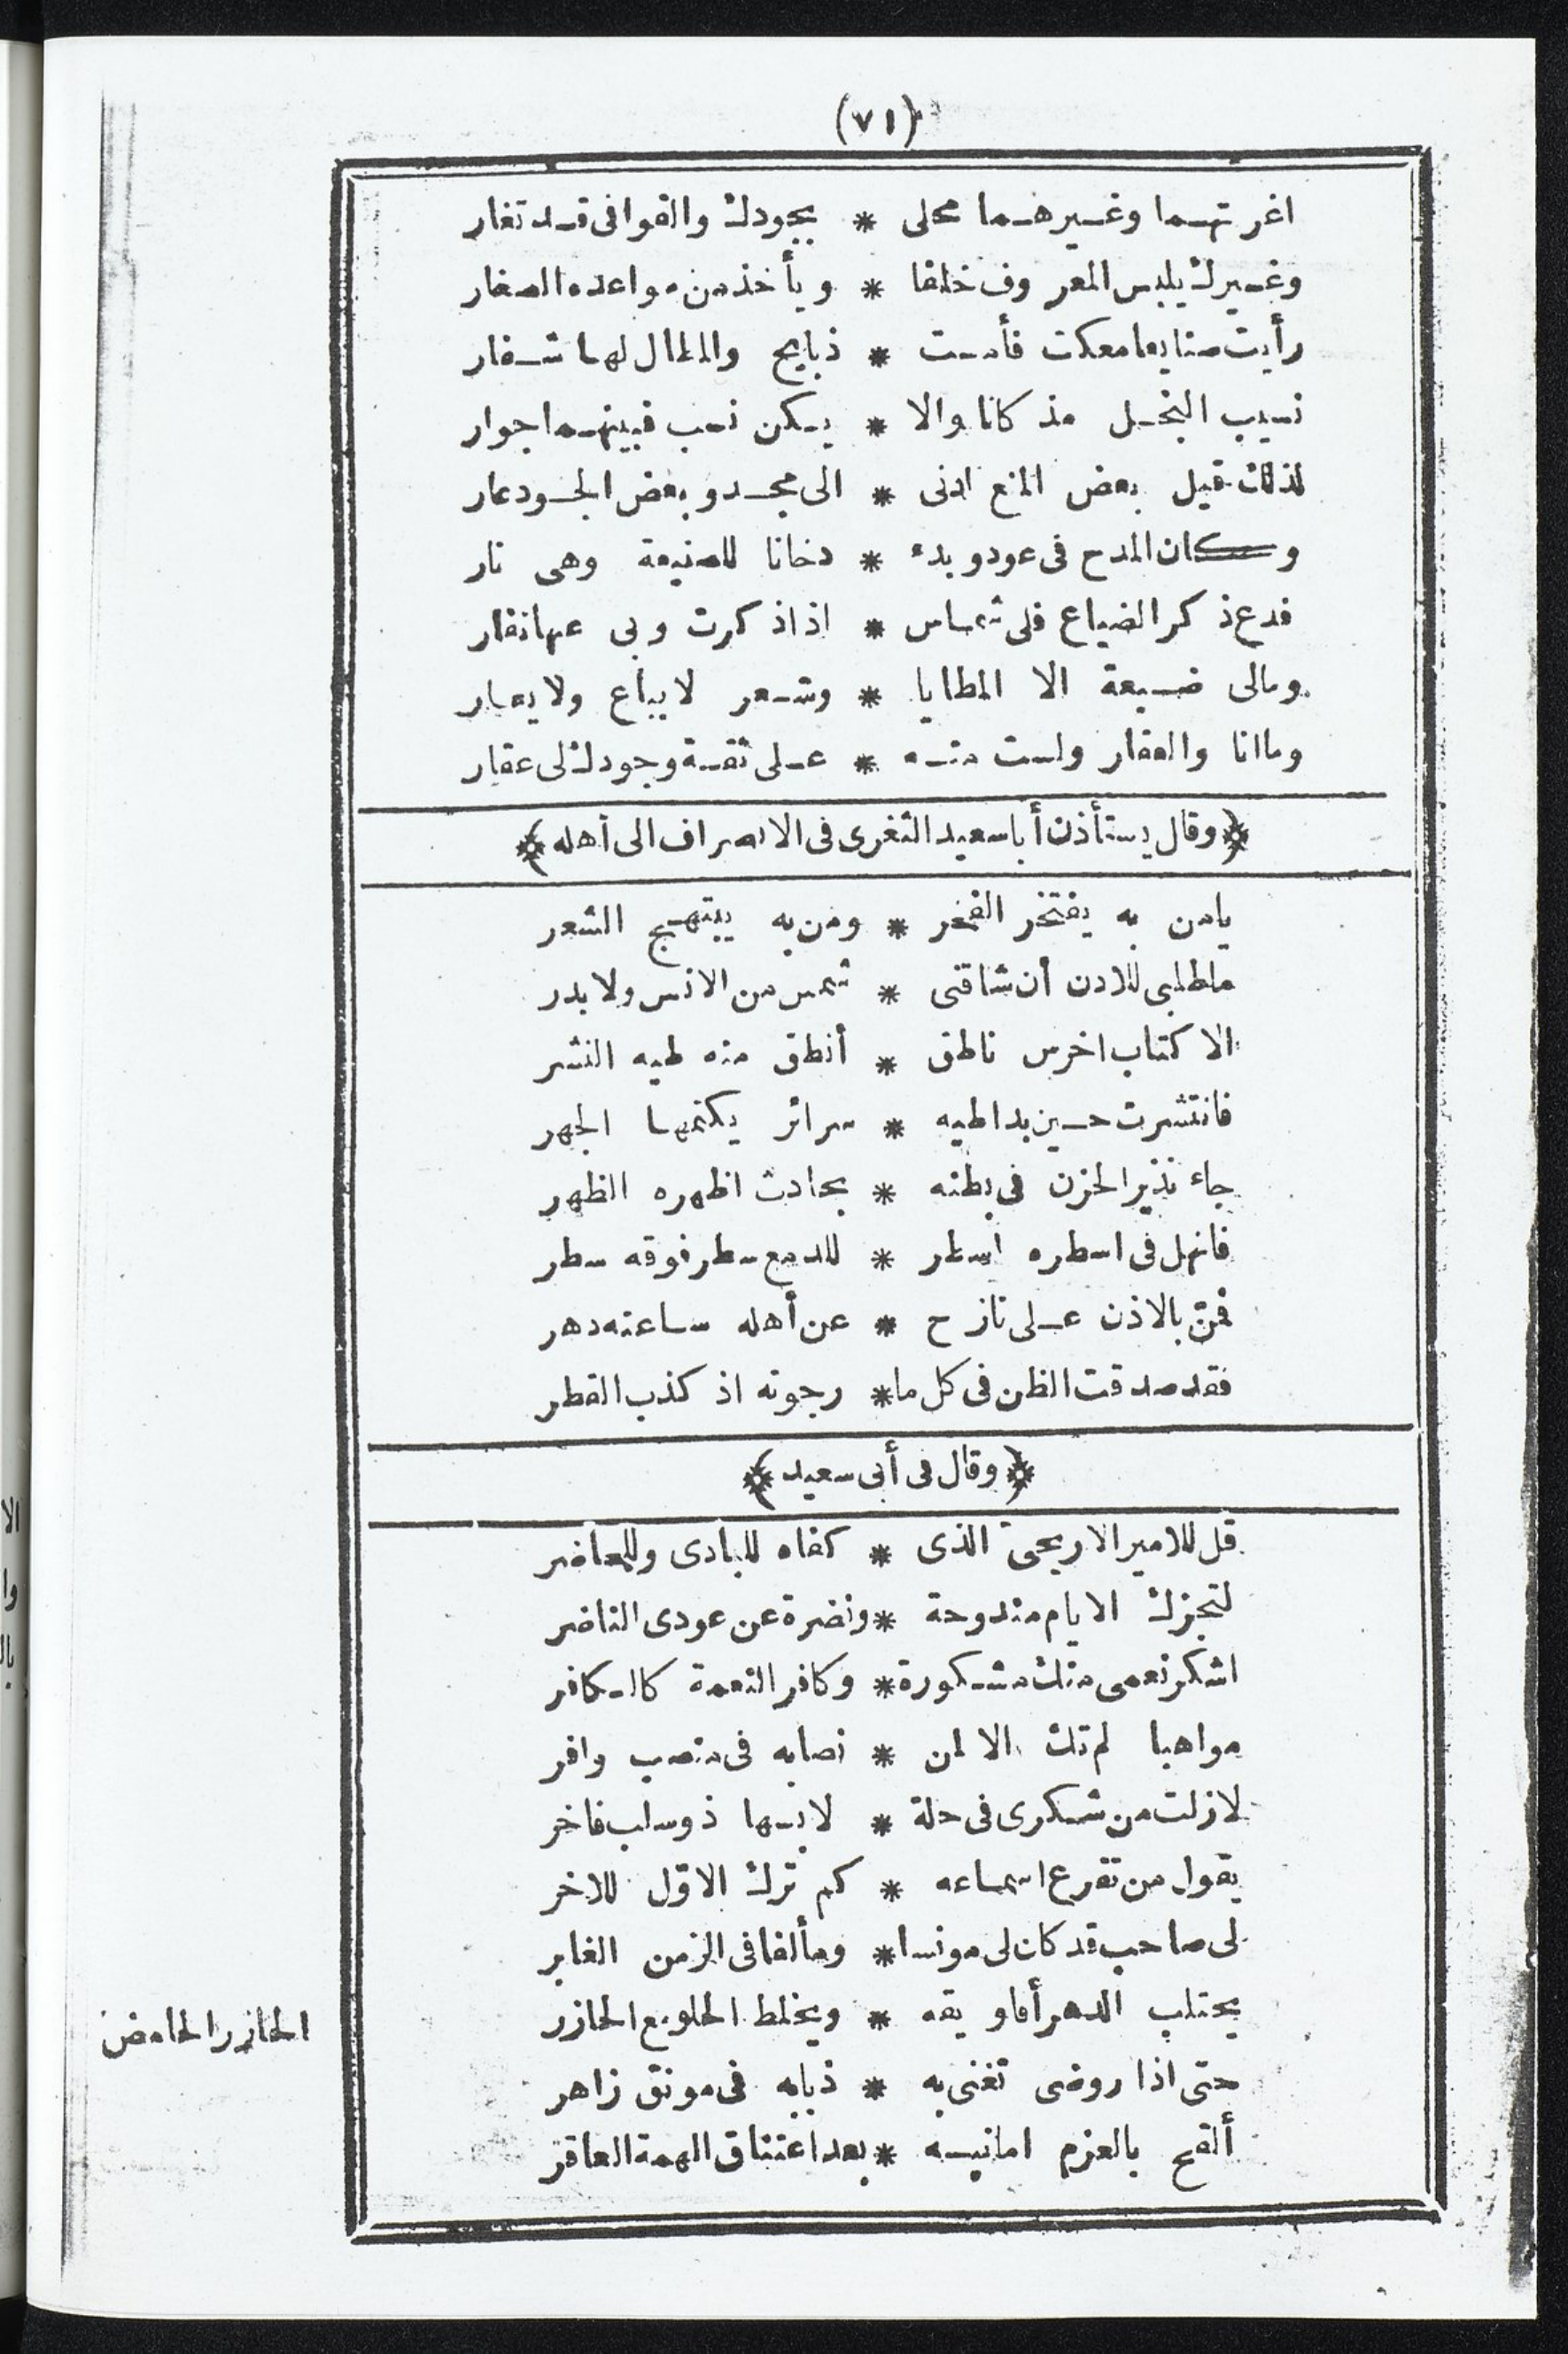 (٧١)
اغر تهما وغيرهما محلى * بجودك والقوافى قد تغار
وغيرك يلبس المعروف خلفا * ويأخذ من مواعده الصغار
رأيت صنايعا معكت فأمست * ذبايح والمطال لها شفار
نسيب البخل مذ كانا والا * يكن نسب فبينهما جوار
لذلك قيل بعض المنع ادنى * الى مجد وبعض الجود عار
وكان المدح فى عود وبدء * دخانا للصنيعة وهى نار
فدع ذكر الضياع فلى شماس * اذا ذكرت وبى عنها نفار
ومالى ضيعة الا المطايا * وشعر لا يباع ولا يعار
وما انا والعقار ولست منه * على ثقة وجودك لى عقار
﴿وقال يستأذن أبا سعيد الثغرى فى الانصراف الى أهله﴾
يا من به يفتخر الفخر * ومن به يبتهج الشعر
ما طلبى للاذن أن شاقنى * شمس من الانس ولا بدر
الا كتاب اخرس ناطق * أنطق منه طيه النشر
فانتشرت حين بدا طيه * سرائر يكتمها الجهر
جاء نذير الحزن فى بطنه * بحادث اظهره الظهر
فانهل فى اسطره اسطر * للدمع سطر فوقه سطر
فمنّ بالاذن على نازح * عن أهله ساعته دهر
فقد صدقت الظن فى كل ما * رجوته اذ كذب القطر
﴿وقال فى أبى سعيد﴾
قل للامير الاريحىّ الذى * كفاه للبادى وللحاضر
لتجزك الايام مندوحة * ونضرة عن عودى الناضر
اشكر نعمى منك مشكورة * وكافر النعمة كالكافر
مواهبا لم تك الا لمن * نصابه فى منصب وافر
لا زلت من شكرى فى حلة * لابسها ذو سلب فاخر
يقول من تقرع اسماعه * كم ترك الاوّل للاخر
لى صاحب قد كان لى مونسا * ومألفا فى الزمن الغابر
يحتلب الدهر أفاويقه * ويخلط الحلو مع الحازر
الحازر الحامض
حتى اذا روضى تغنى به * ذبابه فى مونق زاهر
ألقح بالعزم امانيه * بعد اعتناق الهمة العاقر